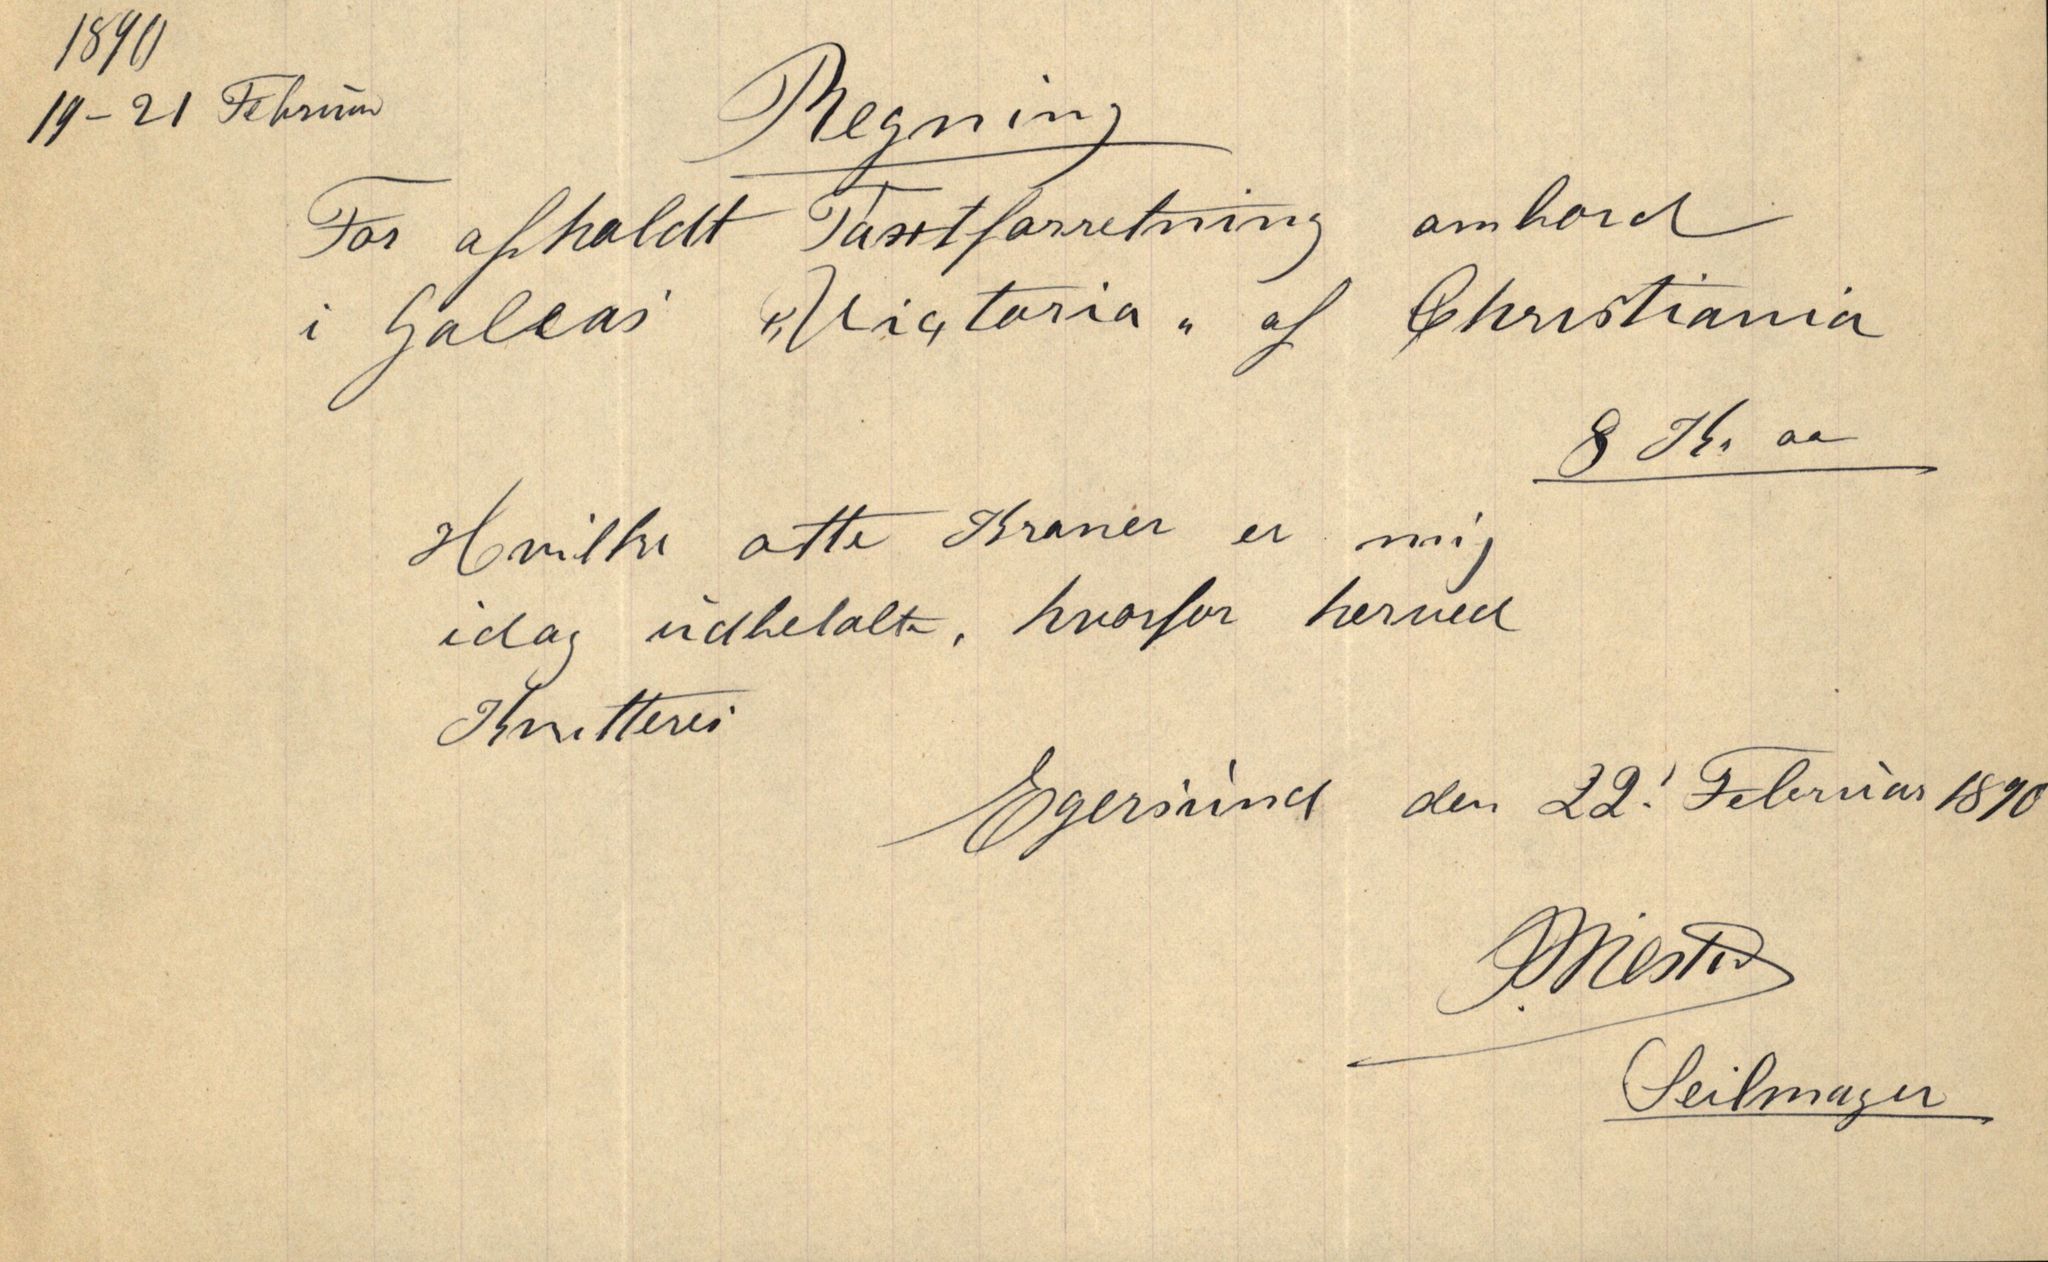 1890
19-21 Februar
Regning
For afholdt Taxtforretning ombord
i Galeas "Victoria" af Christiania
8 Kr. oo
Hvilke otte Kroner er mig
idag udbetalte, hvorfor herved
Kvitteres
Egersund den 22! Februar 1890
Seilmager